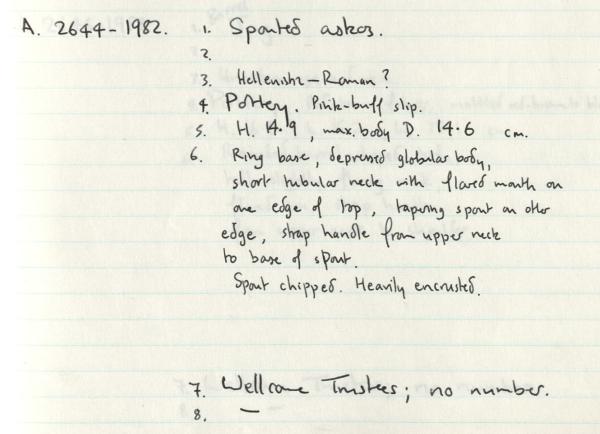 A. 2644-1982. 1. Spouted askos.
2.
3. Hellenistic-Roman?
4. Pottery. Pink-buff slip.
5. H. 14.9, max. body D. 14.6 cm.
6. Ring base, depressed globular body,
short tubular neck with flared mouth on
one edge of top, tapering spout on other
edge, strap handle from upper neck
to base of spout.
Spout chipped. Heavily encrusted.
7. Wellcome Trustees; no number.
8. —